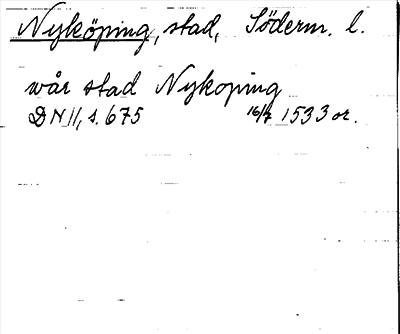 Nyköping, stad, Söderm. l.
wår stad Nykoping
DN 11, s. 675 16/7 1533 or.